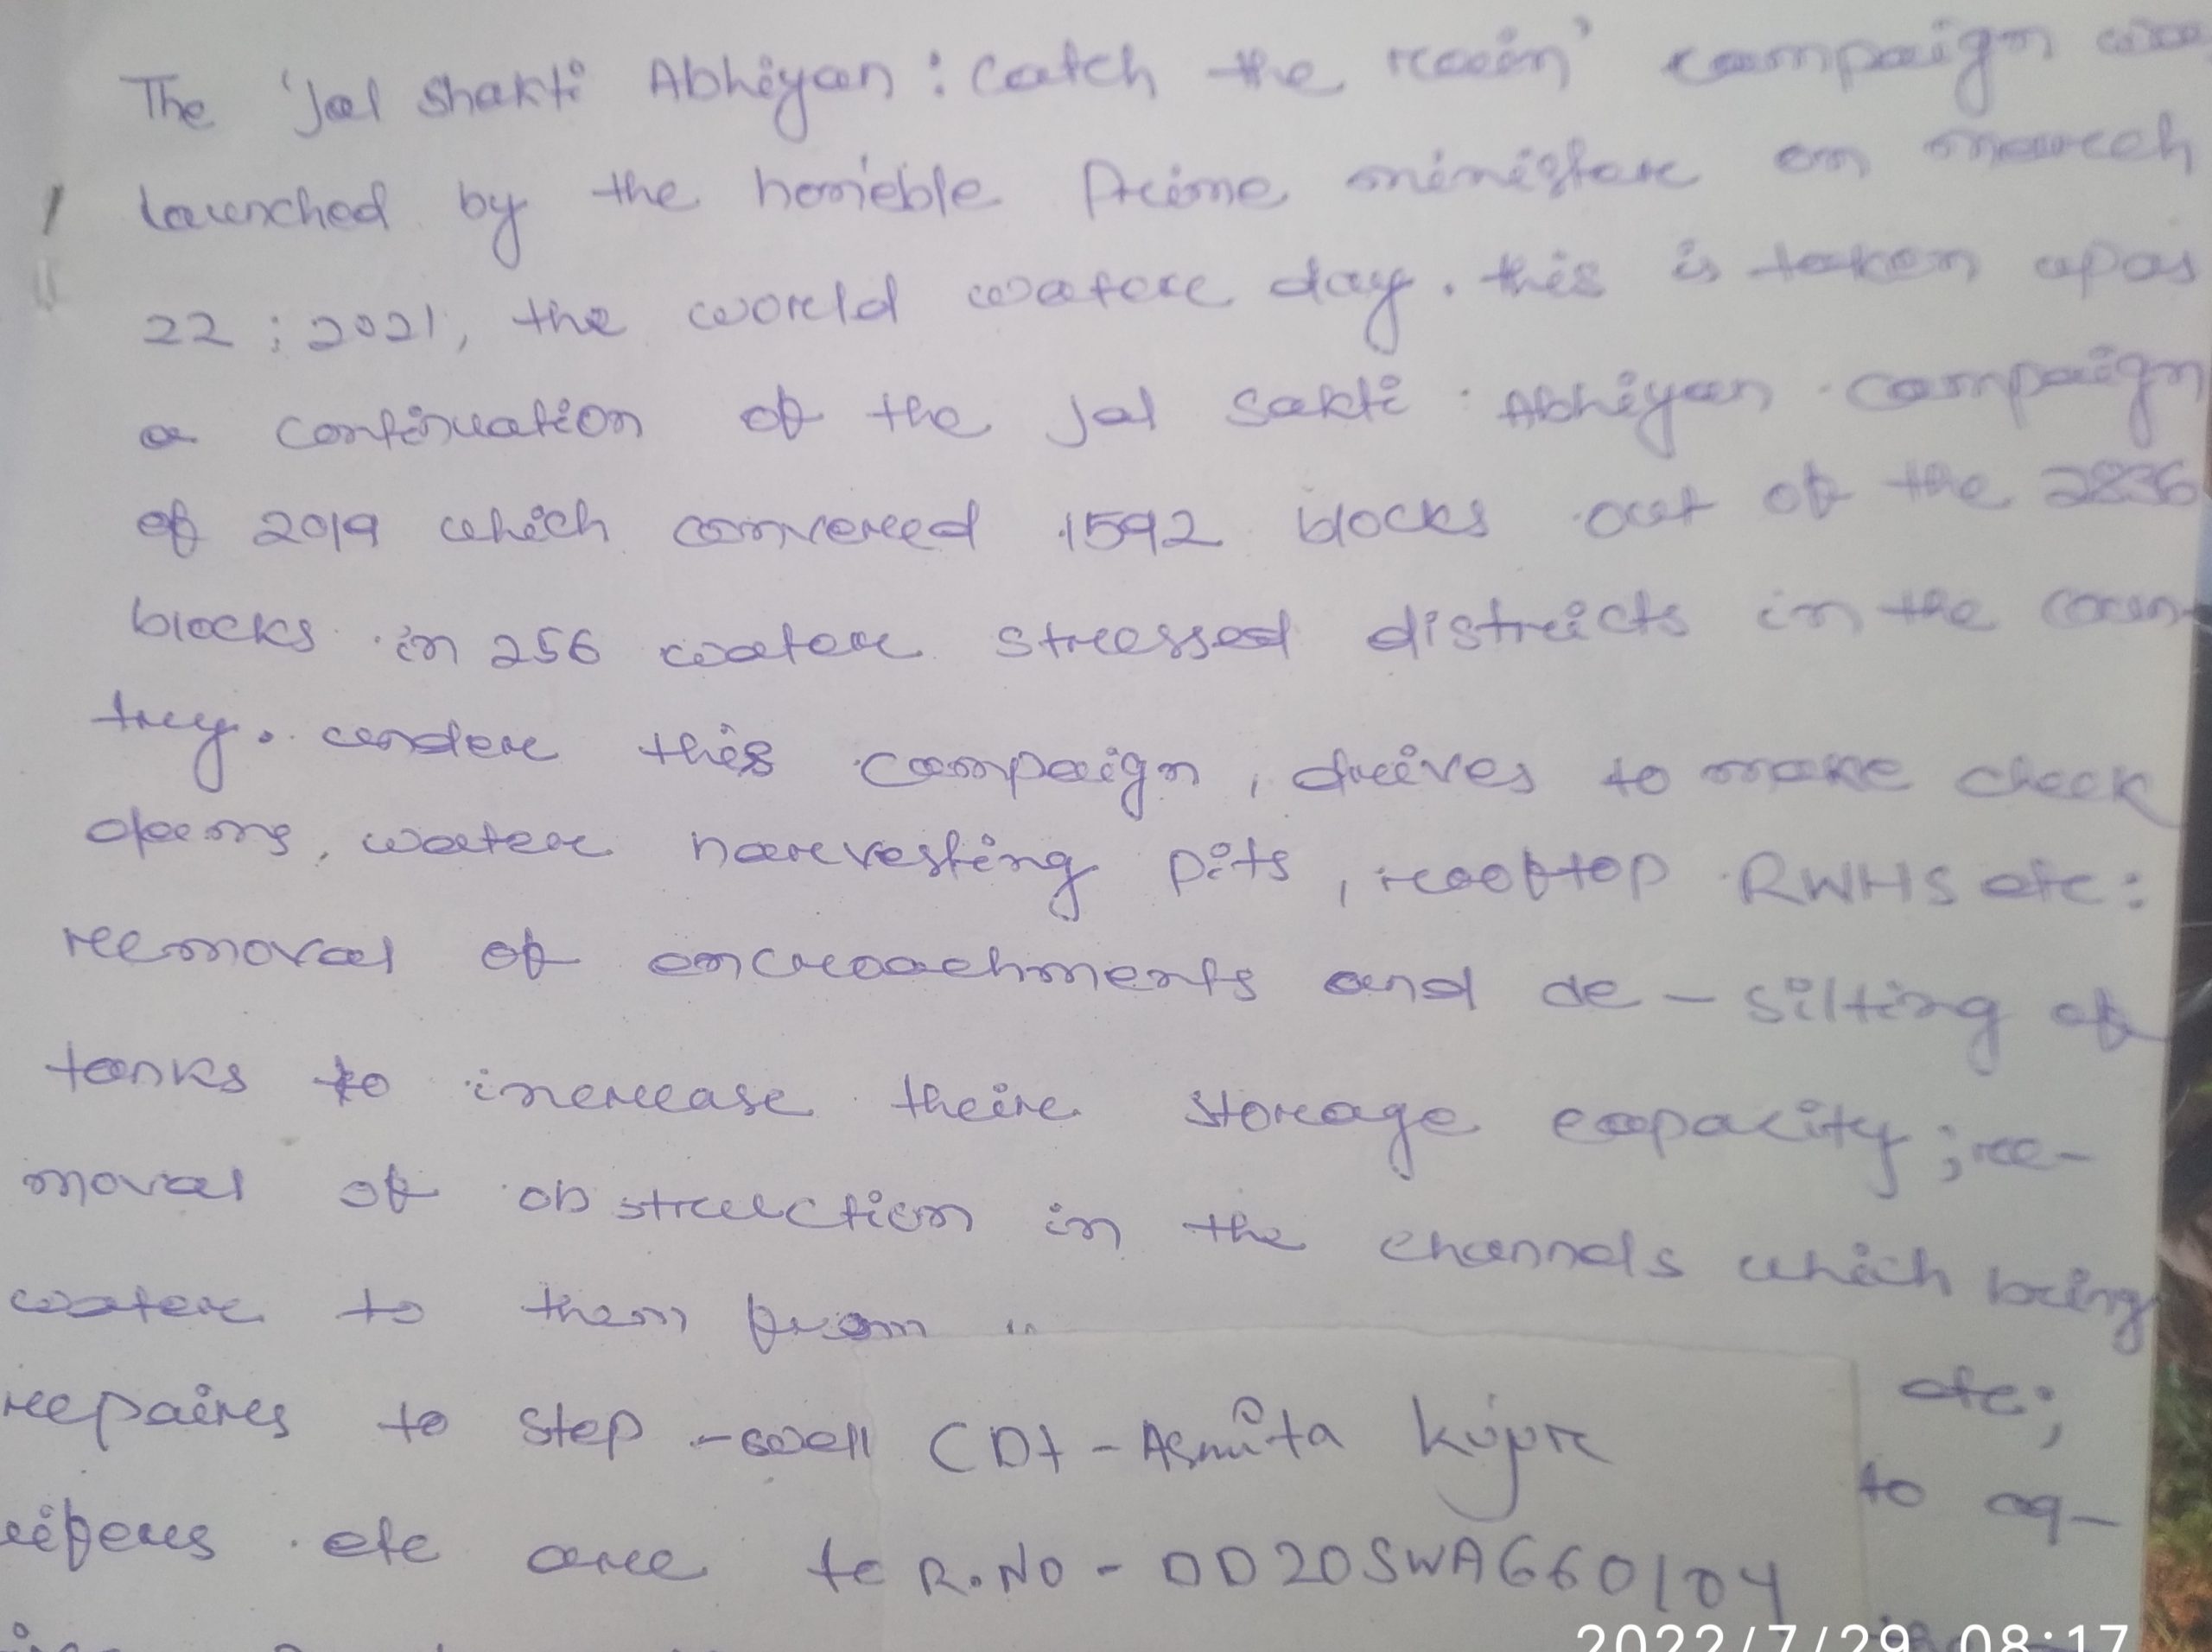 The 'Jal Shakti Abhiyan : Catch the rain' campaign was
launched by the honieble Prime minister on march
22 ; 2021, the world water day. this is taken upas
a continuation of the Jal Sakti Abhiyan campaign
of 2019 which convered 1592 blocks out of the 2836
blocks in 256 water stressed districts in the coun-
try. under this campaign, drives to make check
dams, water harvesting pits, rooftop RWHS etc:
removal of encroachments and de-silting of
tanks to increase their storage capacity; re-
moval of obstruction in the channels which bring
water to them from
repaires to step-well CDT - Asmita kujur etc;
uifers etc are to R.NO - OD20SWA660104 to aq-
2022/7/29 08:17